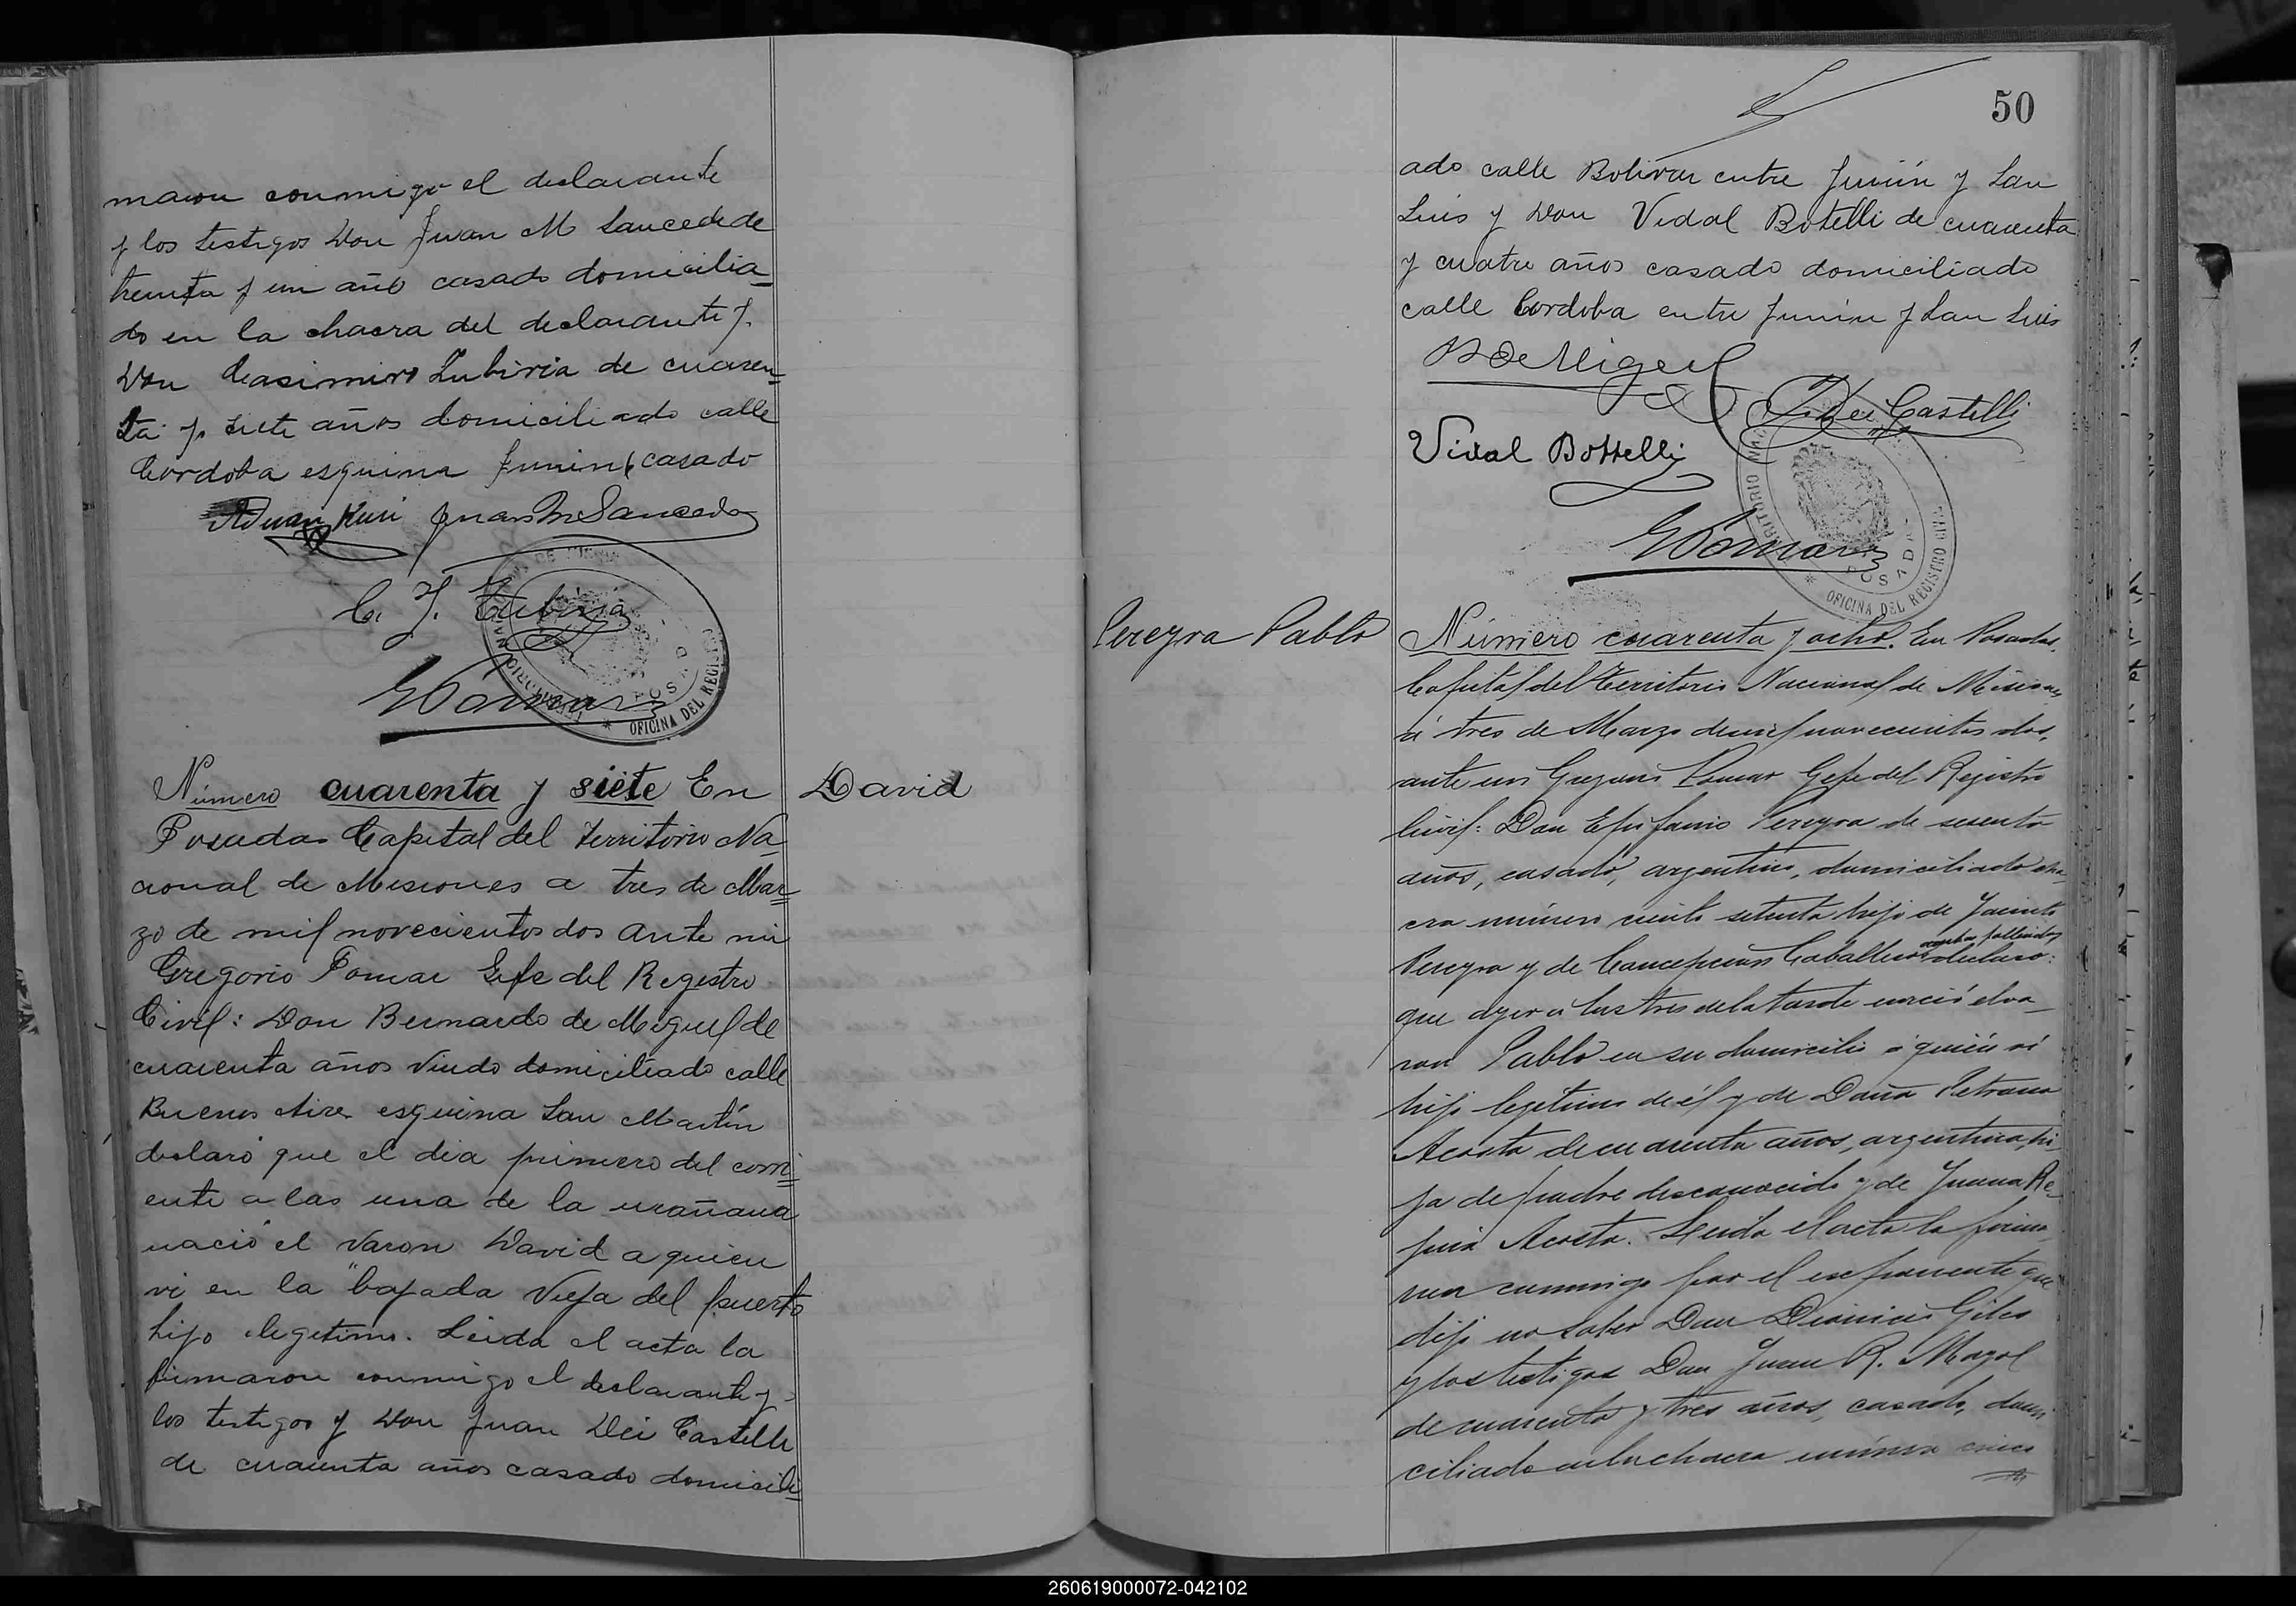 maron conmigo el declarante
y los testigos Don Juan M Saucedo de
treinta y un año casado domicilia
do en la chacra del declarante y
Don Casimiro Lubiria de cuaren
ta y siete años domiciliado calle
Córdoba esquina Junin casado
Juan M Saucedo
C. J. Lubiria
GPomar
OFICINA DEL REGISTRO
Número cuarenta y siete En
David
Posadas Capital del Territorio Na
cional de Misiones a tres de Mar
zo de mil novecientos dos ante mi
Gregorio Pomar Gefe del Registro
Civil: Don Bernardo de Miguel de
cuarenta años viudo domiciliado calle
Buenos Aires esquina San Martín
declaró que el dia primero del corri
ente a las una de la mañana
nació el varon David a quien
vi en la "bajada vieja del puerto
hijo ilegetimo. Leida el acta la
firmaron conmigo el declarante y
los testigos y Don Juan Dei Castelli
de cuarenta años casado domicili
50
ado calle Bolivar entre Junín y San
Luis y Don Vidal Botelli de cuarenta
y cuatro años casado domiciliado
calle Cordoba entre Junin y San Luis
B de Miguel
J. Dei Castelli
Vidal Bottelli
GPomar
POSADAS
OFICINA DEL REGISTRO CIVIL
Pereyra Pablo
Número cuarenta y ocho. En Posadas,
Capital del Territorio Nacional de Misiones
á tres de Marzo de mil novecientos dos,
ante mi Gregorio Pomar Gefe del Registro
Civil: Don Epifanio Pereyra de sesenta
años, casado, argentino, domiciliado cha-
cra número ciento setenta hijo de Jacinto
Pereyra y de Concepcion Caballero ambos fallecidos declaro:
que ayer a las tres de la tarde nació el va-
ron Pablo en su domicilio a quién ví
hijo legítimo de él y de Doña Petrona
Acosta de cuarenta años, argentina, hi-
ja de padre desconocido y de Juana Re-
Acosta. Leida el acta la firma
ron conmigo por el exponente que
dijo no saber Don Dionicio Giles
y los testigos Don Juan R. Mayol
de cuarenta y tres años, casado, domi
ciliado en la chacra número cinco
260619000072-042102